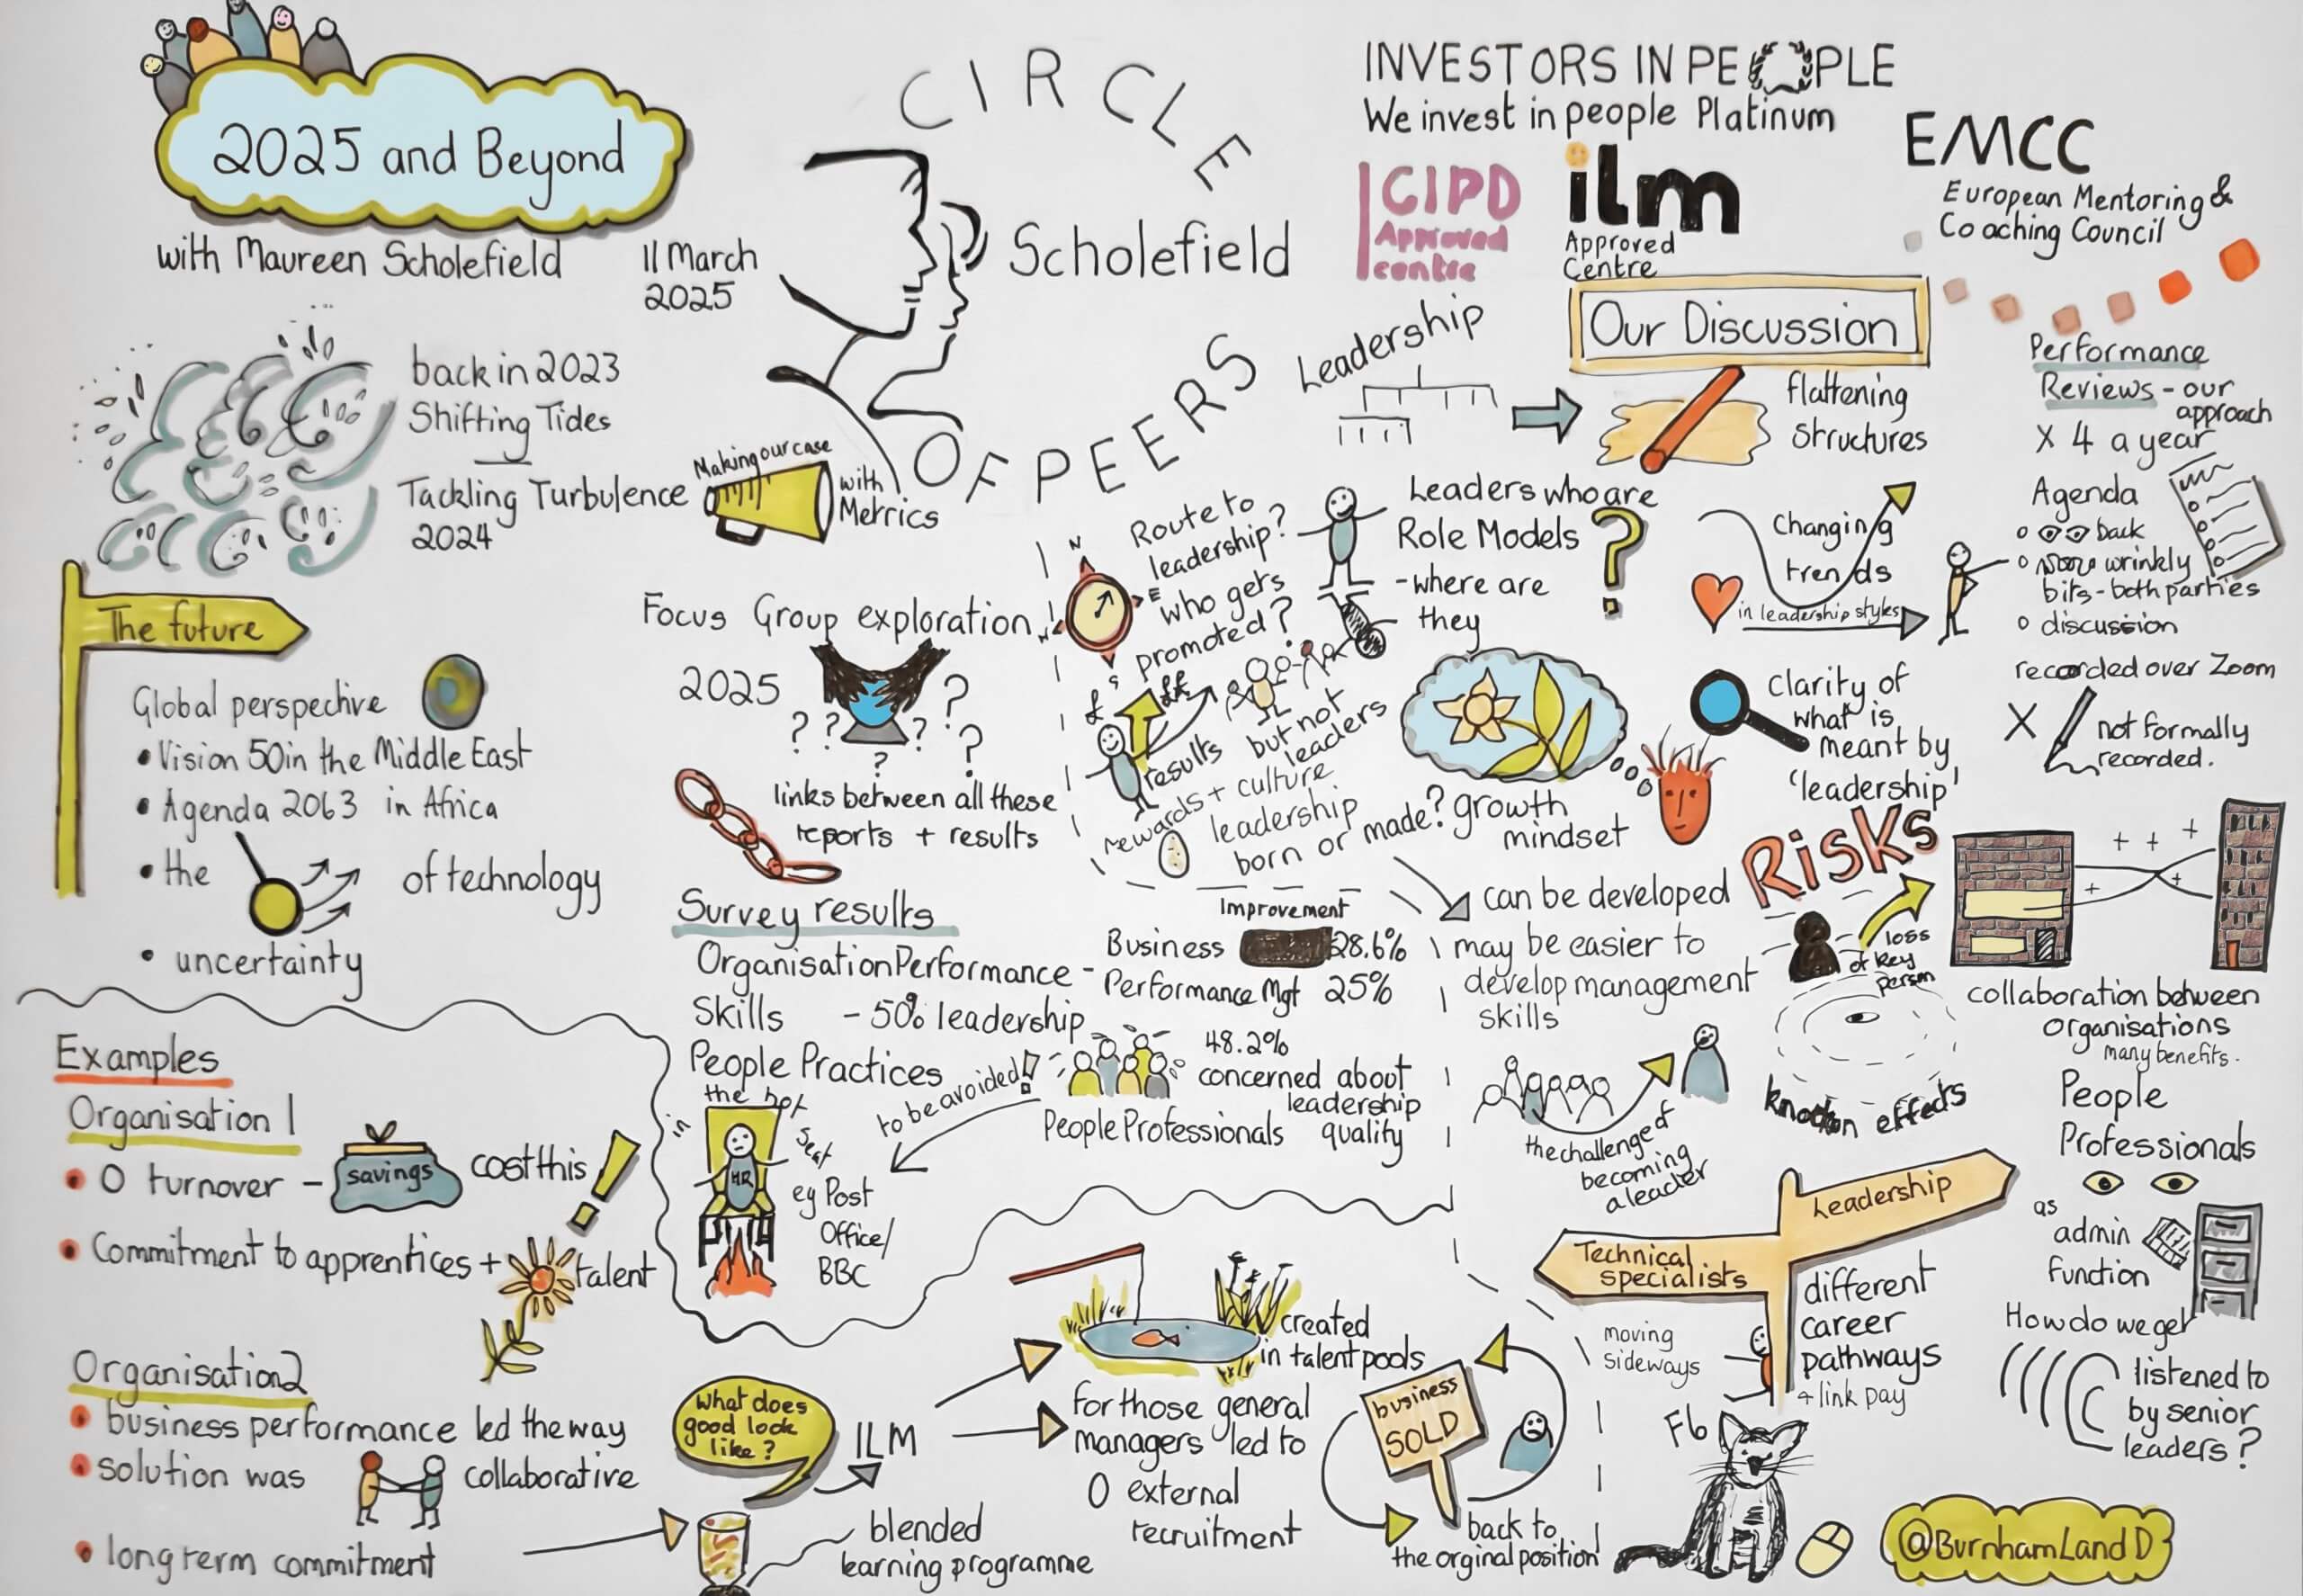 2025 and Beyond
with Maureen Scholefield
11 March
2025
CIRCLE
Scholefield
OF PEERS
INVESTORS IN PEOPLE
We invest in people Platinum
CIPD
Approved
centre
ilm
Approved
Centre
EMCC
European Mentoring &
Coaching Council
back in 2023
Shifting Tides
Tackling Turbulence
2024
Making our case
with
Metrics
The future
Global perspective
• Vision 50 in the Middle East
• Agenda 2063 in Africa
• the
of technology
• uncertainty
Focus Group exploration
2025
? ? ? ? ? ?
links between all these
reports + results
Survey results
Improvement
Organisation Performance -
Business 28.6%
Performance Mgt 25%
Skills - 50% leadership
People Practices
to be avoided!
48.2%
concerned about
leadership
quality
People Professionals
in the hot seat
HR
eg Post
Office/
BBC
Examples
Organisation 1
• 0 turnover - savings cost this !
• Commitment to apprentices + talent
Organisation 2
• business performance led the way
• solution was collaborative
• long term commitment
What does
good look
like?
ILM
blended
learning programme
created
in talent pools
for those general
managers led to
0 external
recruitment
business
SOLD
back to
the orginal position
Our Discussion
Leadership
flattening
structures
N
E
S
Route to
leadership?
who gets
promoted?
£
££
results but not
leaders
rewards + culture
leadership
born or made?
Leaders who are
Role Models
- where are
they
?
growth
mindset
can be developed
may be easier to
develop management
skills
the challenge of
becoming
a leader
Changing
trends
in leadership styles
clarity of
what is
meant by
'leadership'
Risks
loss
of key
person
knock on effects
Performance
Reviews - our
approach
X 4 a year
Agenda
o back
o wrinkly
bits - both parties
o discussion
recorded over Zoom
X not formally
recorded.
+ + + + +
collaboration between
organisations
many benefits.
Leadership
Technical
specialists
different
career
pathways
+ link pay
moving
sideways
F6
People
Professionals
as
admin
function
How do we get
listened to
by senior
leaders?
@BurnhamLandD